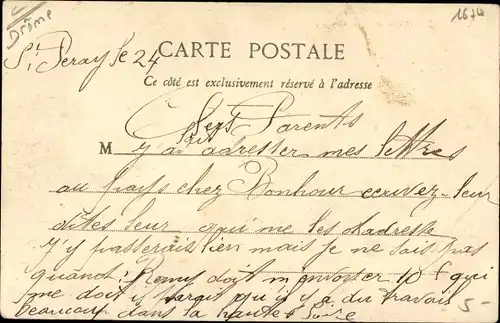 Drôme
1674
St Peray le 24
CARTE POSTALE
Ce côté est exclusivement réservé à l'adresse
Chers Parents
M
j'y ai adresser mes lettres
au pays chez Bonhour ecrivez leur
dites leur qui me les
j'y passerais bien mais je ne sais pas
quand Remy doit m'envoyer 10 f qui
me doit il parait qu'il y a du travail
beaucoup dans la haute
5-